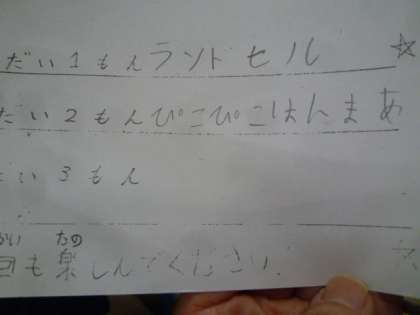 だい1もんランドセル
だい2もんぴこぴこはんまあ
だい3もん
かい たの
回も楽しんでください.